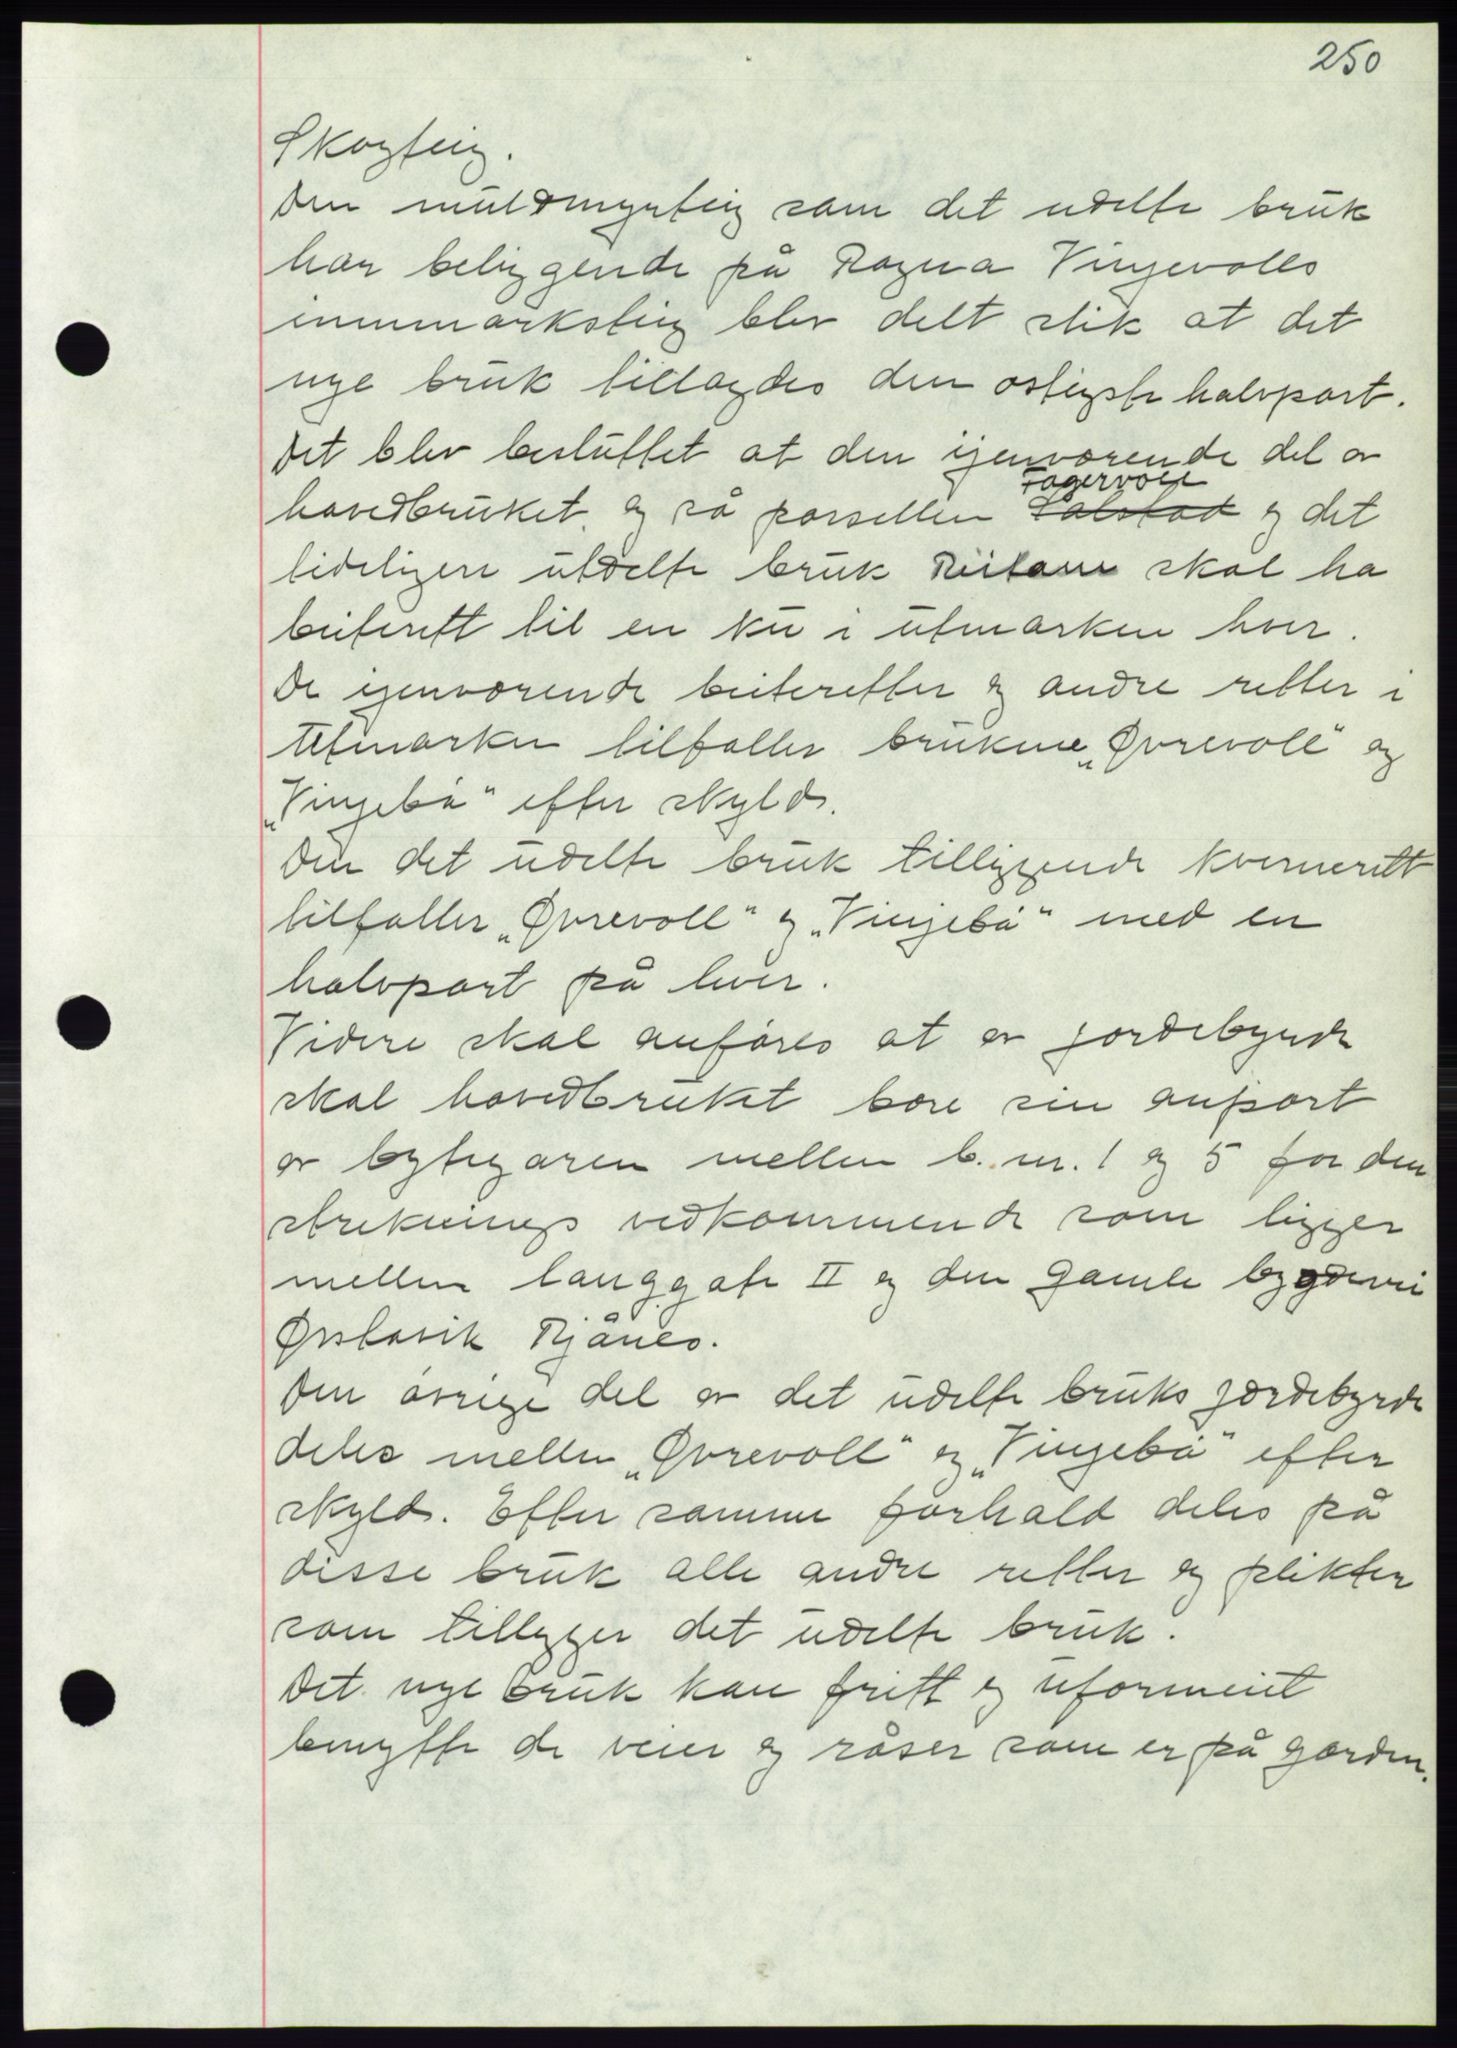 250
Skogteig.
Den muldmyrteig som det udelte bruk
har beliggende på Ragna Vinjevolls
innmarksteig blev delt slik at det
nye bruk tillagdes den østligste halvpart.
Det blev besluttet at den igenværende del av
hovedbruket og så parsellen Fagervoll Solstad og det
tideligere utdelte bruk Reitane skal ha
beiterett til en ku i utmarken hver.
De igenværende beiteretter og andre retter i
utmarken tilfaller brukene „Øvrevoll" og
„Vinjebø" efter skyld.
Den det udelte bruk tilliggende kvernerett
tilfaller „Øvrevoll" og „Vinjebø" med en
halvpart på hver.
Videre skal anføres at av jordebyrde
skal hovedbruket bære sin anpart
av bytegaren mellem b. nr. 1 og 5 for den
streknings vedkommende som ligger
mellem langgate II og den gamle bygdevei
Ørstavik Rjånes.
Den øvrige del av det udelte bruks jordebyrde
deles mellem „Øvrevoll" og „Vinjebø" efter
skyld. Efter samme forhald deles på
disse bruk alle andre retter og plikter
som tillegger det udelte bruk.
Det nye bruk kan fritt og uforment
benytte de veier og råser som er på garden.